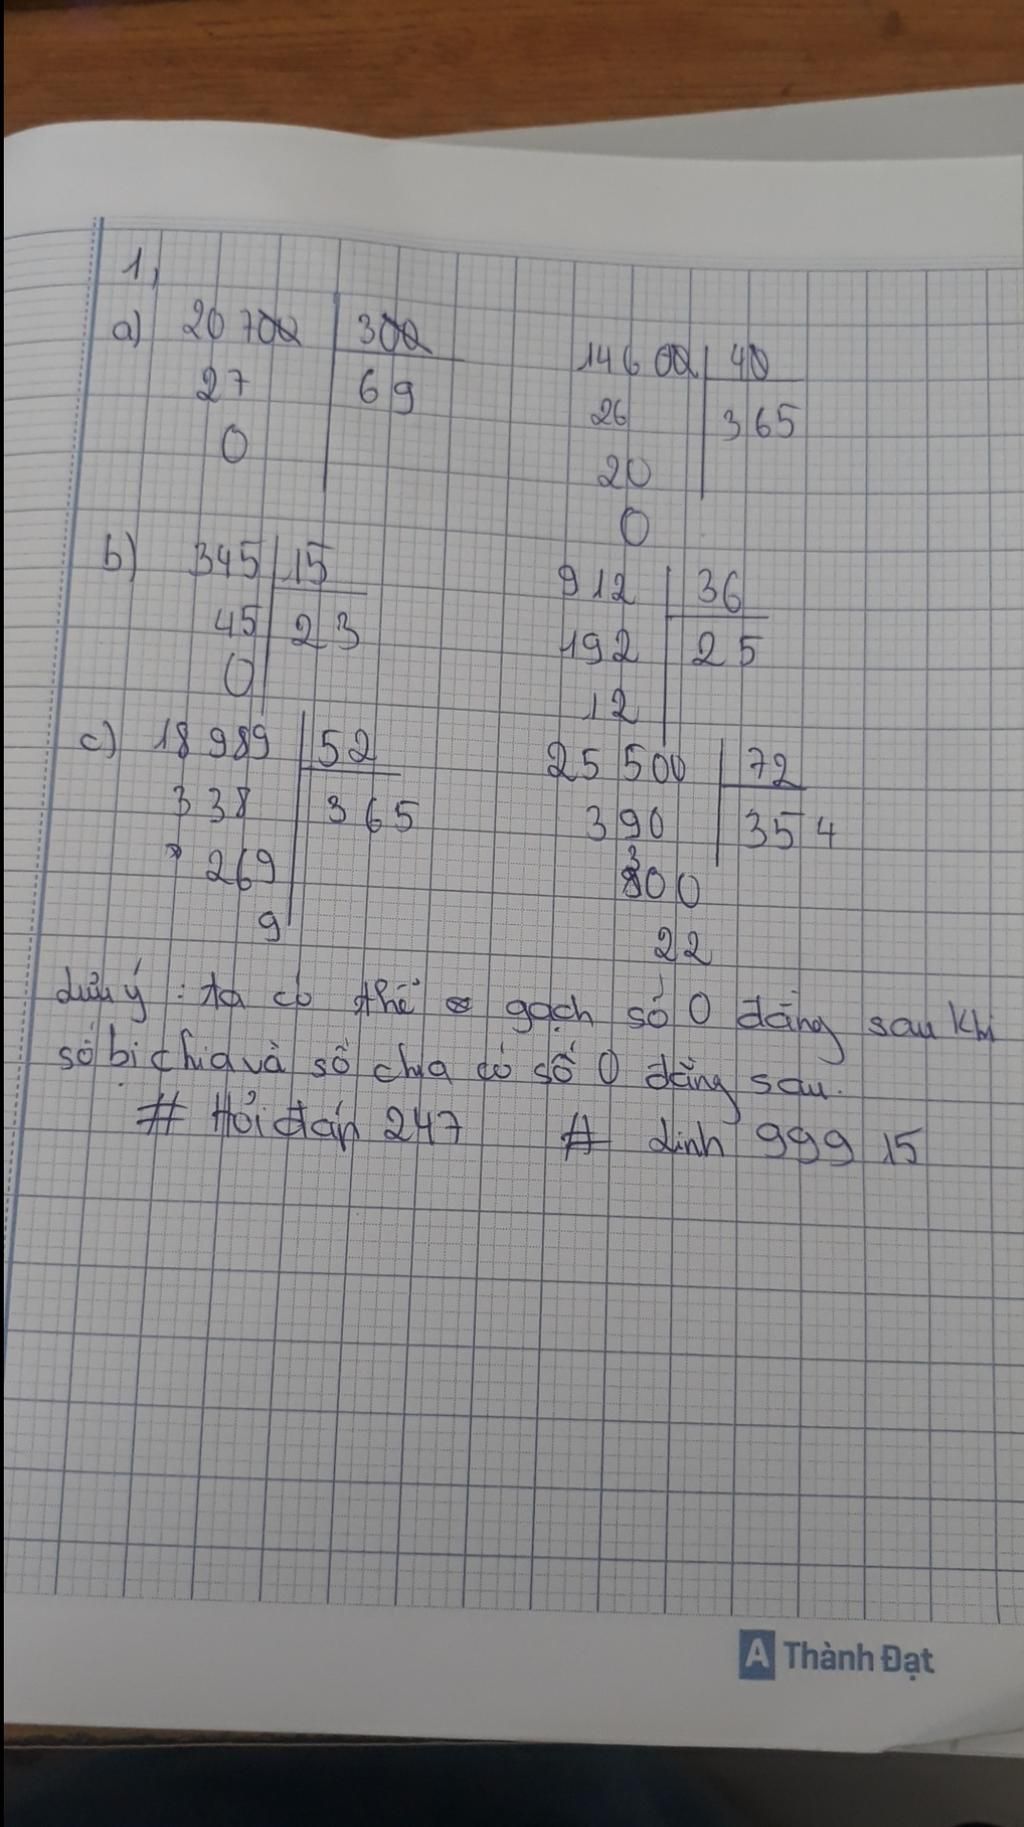 1,
a) 20 700 300 14 600 40
27 69 26 365
0 20
0
b) 345 15 912 36
45 23 192 25
0 12
c) 18 989 52 25 500 72
338 365 390 354
269 300
9 22
Lưu ý : ta có thể gạch số 0 đằng sau khi
số bị chia và số chia có số 0 đằng sau.
# Hỏi đáp 247 # Linh 999 15
A Thành Đạt